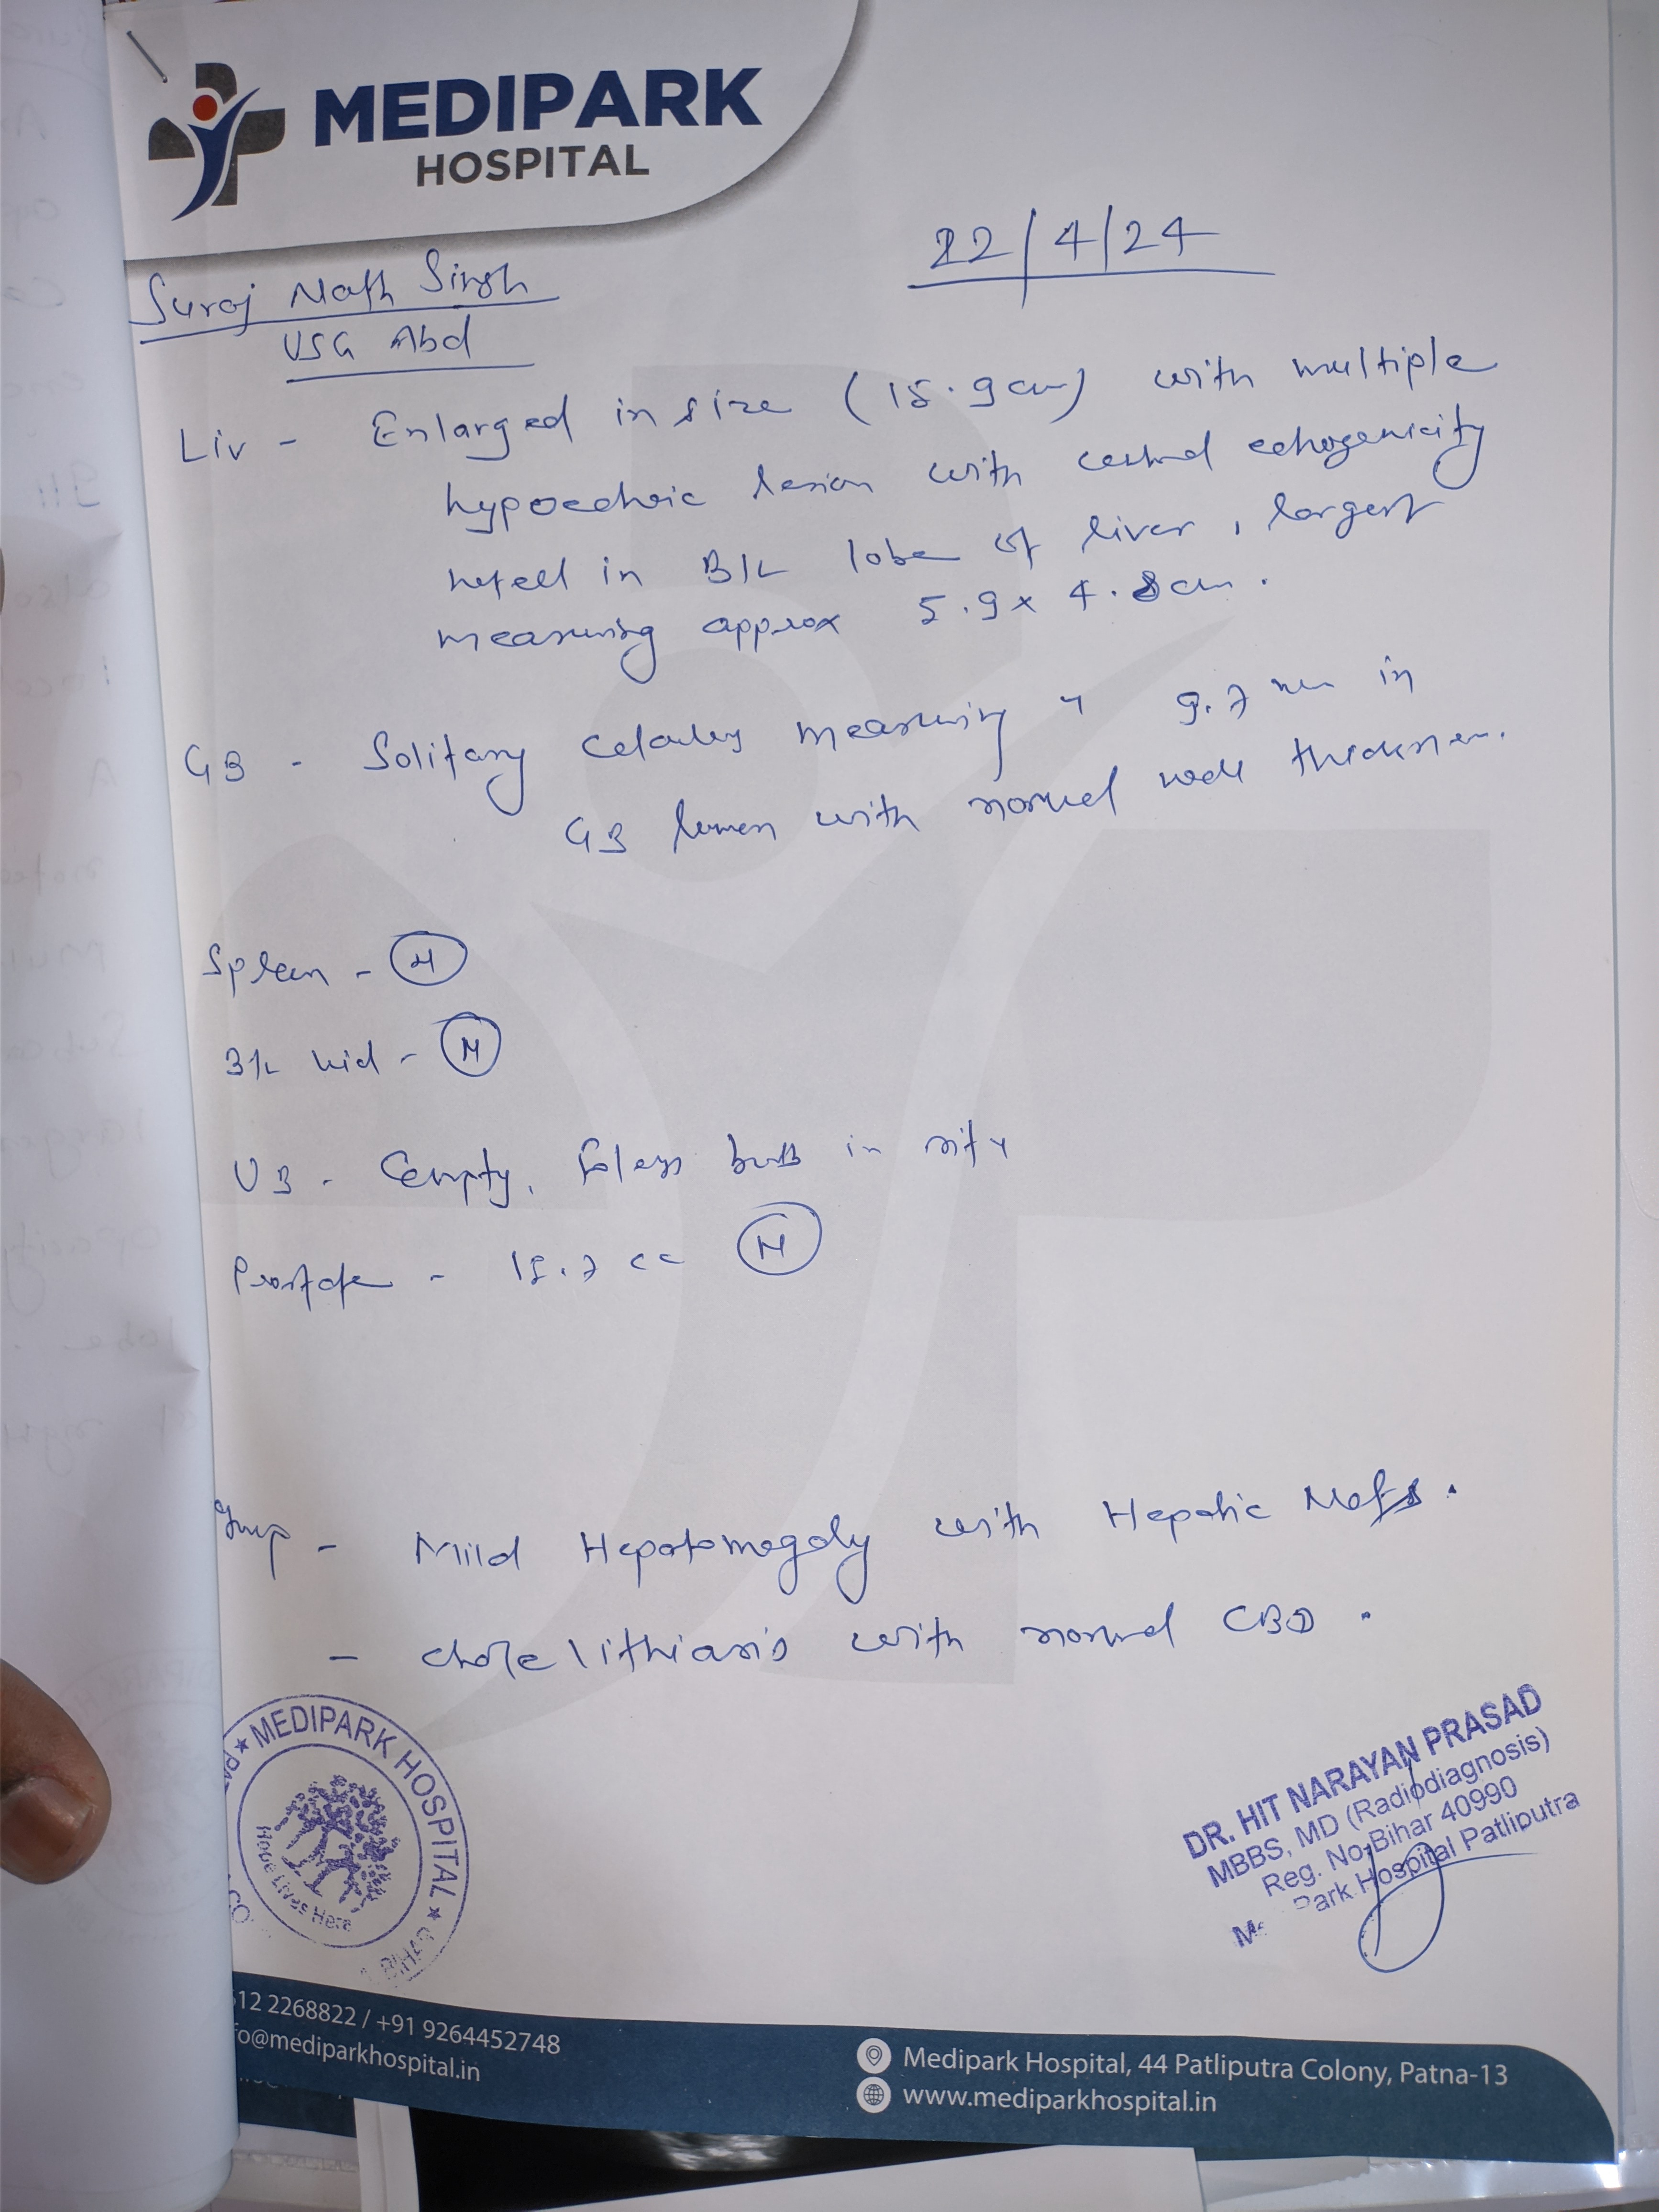 MEDIPARK
HOSPITAL
22/4/24
Suraj Nath Singh
USG Abd
Liv - Enlarged in size (15.9 cm) with multiple
hypoechoic lesion with central echogenicity
noted in B/L lobe of liver, largest
measuring approx 5.9 x 4.8 cm.
GB - Solitary calculus measuring 9.7 mm in
GB lumen with normal wall thickness.
Spleen - N
B/L kid - N
UB - Empty, Foleys bulb in situ
Prostate - 15.7 cc N
Imp - Mild Hepatomegaly with Hepatic Mets.
- Cholelithiasis with normal CBD.
MEDIPARK HOSPITAL
Hope Lives Here
DR. HIT NARAYAN PRASAD
MBBS, MD (Radiodiagnosis)
Reg. No-Bihar 40990
Park Hospital Patliputra
12 2268822 / +91 9264452748
fo@mediparkhospital.in
Medipark Hospital, 44 Patliputra Colony, Patna-13
www.mediparkhospital.in